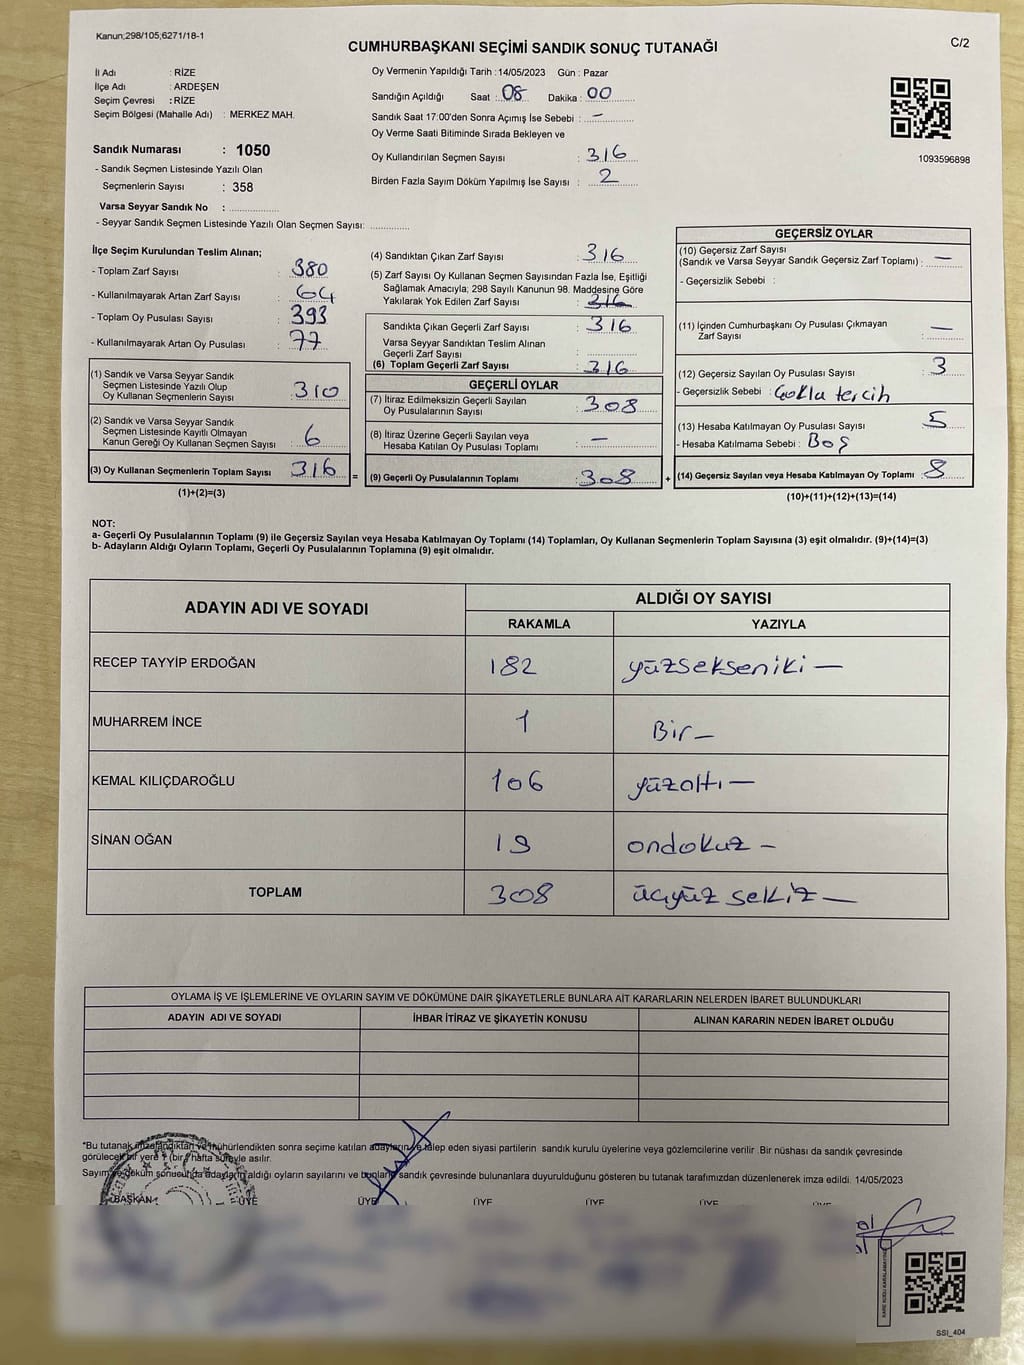 Kanun;298/105;6271/18-1
C/2
CUMHURBAŞKANI SEÇİMİ SANDIK SONUÇ TUTANAĞI
İl Adı : RİZE
İlçe Adı : ARDEŞEN
Seçim Çevresi : RİZE
Seçim Bölgesi (Mahalle Adı) : MERKEZ MAH.
Sandık Numarası : 1050
- Sandık Seçmen Listesinde Yazılı Olan
Seçmenlerin Sayısı : 358
Varsa Seyyar Sandık No : ................
- Seyyar Sandık Seçmen Listesinde Yazılı Olan Seçmen Sayısı: ............
Oy Vermenin Yapıldığı Tarih :14/05/2023 Gün : Pazar
Sandığın Açıldığı Saat : 08 Dakika : 00
Sandık Saat 17:00'den Sonra Açımış İse Sebebi : —
Oy Verme Saati Bitiminde Sırada Bekleyen ve
Oy Kullandırılan Seçmen Sayısı : 316
Birden Fazla Sayım Döküm Yapılmış İse Sayısı : 2
1093596898
İlçe Seçim Kurulundan Teslim Alınan;
- Toplam Zarf Sayısı : 380
- Kullanılmayarak Artan Zarf Sayısı : 64
- Toplam Oy Pusulası Sayısı : 393
- Kullanılmayarak Artan Oy Pusulası : 77
(1) Sandık ve Varsa Seyyar Sandık
Seçmen Listesinde Yazılı Olup
Oy Kullanan Seçmenlerin Sayısı : 310
(2) Sandık ve Varsa Seyyar Sandık
Seçmen Listesinde Kayıtlı Olmayan
Kanun Gereği Oy Kullanan Seçmen Sayısı : 6
(3) Oy Kullanan Seçmenlerin Toplam Sayısı : 316
(1)+(2)=(3)
=
(4) Sandıktan Çıkan Zarf Sayısı : 316
(5) Zarf Sayısı Oy Kullanan Seçmen Sayısından Fazla İse, Eşitliği
Sağlamak Amacıyla; 298 Sayılı Kanunun 98. Maddesine Göre
Yakılarak Yok Edilen Zarf Sayısı : 316
Sandıkta Çıkan Geçerli Zarf Sayısı : 316
Varsa Seyyar Sandıktan Teslim Alınan
Geçerli Zarf Sayısı : ............
(6) Toplam Geçerli Zarf Sayısı : 316
GEÇERLİ OYLAR
(7) İtiraz Edilmeksizin Geçerli Sayılan
Oy Pusulalarının Sayısı : 308
(8) İtiraz Üzerine Geçerli Sayılan veya
Hesaba Katılan Oy Pusulası Toplamı : —
(9) Geçerli Oy Pusulalarının Toplamı : 308
+
GEÇERSİZ OYLAR
(10) Geçersiz Zarf Sayısı
(Sandık ve Varsa Seyyar Sandık Geçersiz Zarf Toplamı) : —
- Geçersizlik Sebebi :
(11) İçinden Cumhurbaşkanı Oy Pusulası Çıkmayan
Zarf Sayısı : —
(12) Geçersiz Sayılan Oy Pusulası Sayısı : 3
- Geçersizlik Sebebi : Çoklu tercih
(13) Hesaba Katılmayan Oy Sayısı : 5
- Hesaba Katılmama Sebebi : Boş
(14) Geçersiz Sayılan veya Hesaba Katılmayan Oy Toplamı : 8
(10)+(11)+(12)+(13)=(14)
NOT:
a- Geçerli Oy Pusulalarının Toplamı (9) ile Geçersiz Sayılan veya Hesaba Katılmayan Oy Toplamı (14) Toplamları, Oy Kullanan Seçmenlerin Toplam Sayısına (3) eşit olmalıdır. (9)+(14)=(3)
b- Adayların Aldığı Oyların Toplamı, Geçerli Oy Pusulalarının Toplamına (9) eşit olmalıdır.
ADAYIN ADI VE SOYADI
ALDIĞI OY SAYISI
RAKAMLA YAZIYLA
RECEP TAYYİP ERDOĞAN 182 yüzsekseniki —
MUHARREM İNCE 1 Bir —
KEMAL KILIÇDAROĞLU 106 yüzaltı —
SİNAN OĞAN 19 ondokuz —
TOPLAM 308 üçyüz sekiz —
OYLAMA İŞ VE İŞLEMLERİNE VE OYLARIN SAYIM VE DÖKÜMÜNE DAİR ŞİKAYETLERLE BUNLARA AİT KARARLARIN NELERDEN İBARET BULUNDUKLARI
ADAYIN ADI VE SOYADI İHBAR İTİRAZ VE ŞİKAYETİN KONUSU ALINAN KARARIN NEDEN İBARET OLDUĞU
*Bu tutanak imzalandıktan ve mühürlendikten sonra seçime katılan adayların ve talep eden siyasi partilerin sandık kurulu üyelerine veya gözlemcilerine verilir .Bir nüshası da sandık çevresinde
görülecek bir yere 1 (bir) hafta süreyle asılır.
Sayım ve döküm sonucunda adayların aldığı oyların sayılarını ve bunların sandık çevresinde bulunanlara duyurulduğunu gösteren bu tutanak tarafımızdan düzenlenerek imza edildi. 14/05/2023
BAŞKAN ÜYE ÜYE ÜYE ÜYE ÜYE ÜYE
SSI_404